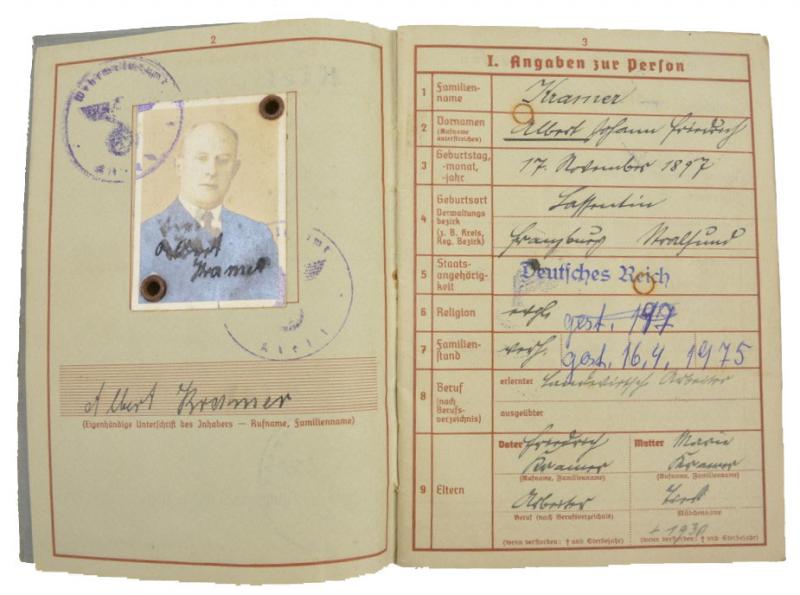 2
Albert
Kramer
Albert Kramer
(Eigenhändige Unterschrift des Inhabers — Rufname, Familienname)
3
I. Angaben zur Person
1 Familien-
name
Kramer
2 Vornamen
(Rufname
unterstreichen)
Albert Johann Friedrich
3 Geburtstag,
-monat,
-jahr
17. November 1897
4 Geburtsort
Verwaltungs
bezirk
(z. B. Kreis,
Reg. Bezirk)
Lassentin
Franzburg Stralsund
5 Staats-
angehörig-
keit
Deutsches Reich
6 Religion
gest. 197
7 Familien-
stand
verh. gest. 16.4.1975
8 Beruf
(nach
Berufs-
verzeichnis)
erlernter Landwirtsch Arbeiter
ausgeübter
9 Eltern
Vater Friedrich
Kramer
(Rufname, Familienname)
Arbeiter
Beruf (nach Berufsverzeichnis)
(wenn verstorben: † und Sterbejahr)
Mutter Marie
Kramer
(Rufname, Familienname)
Mädchenname
(wenn verstorben: † und Sterbejahr)